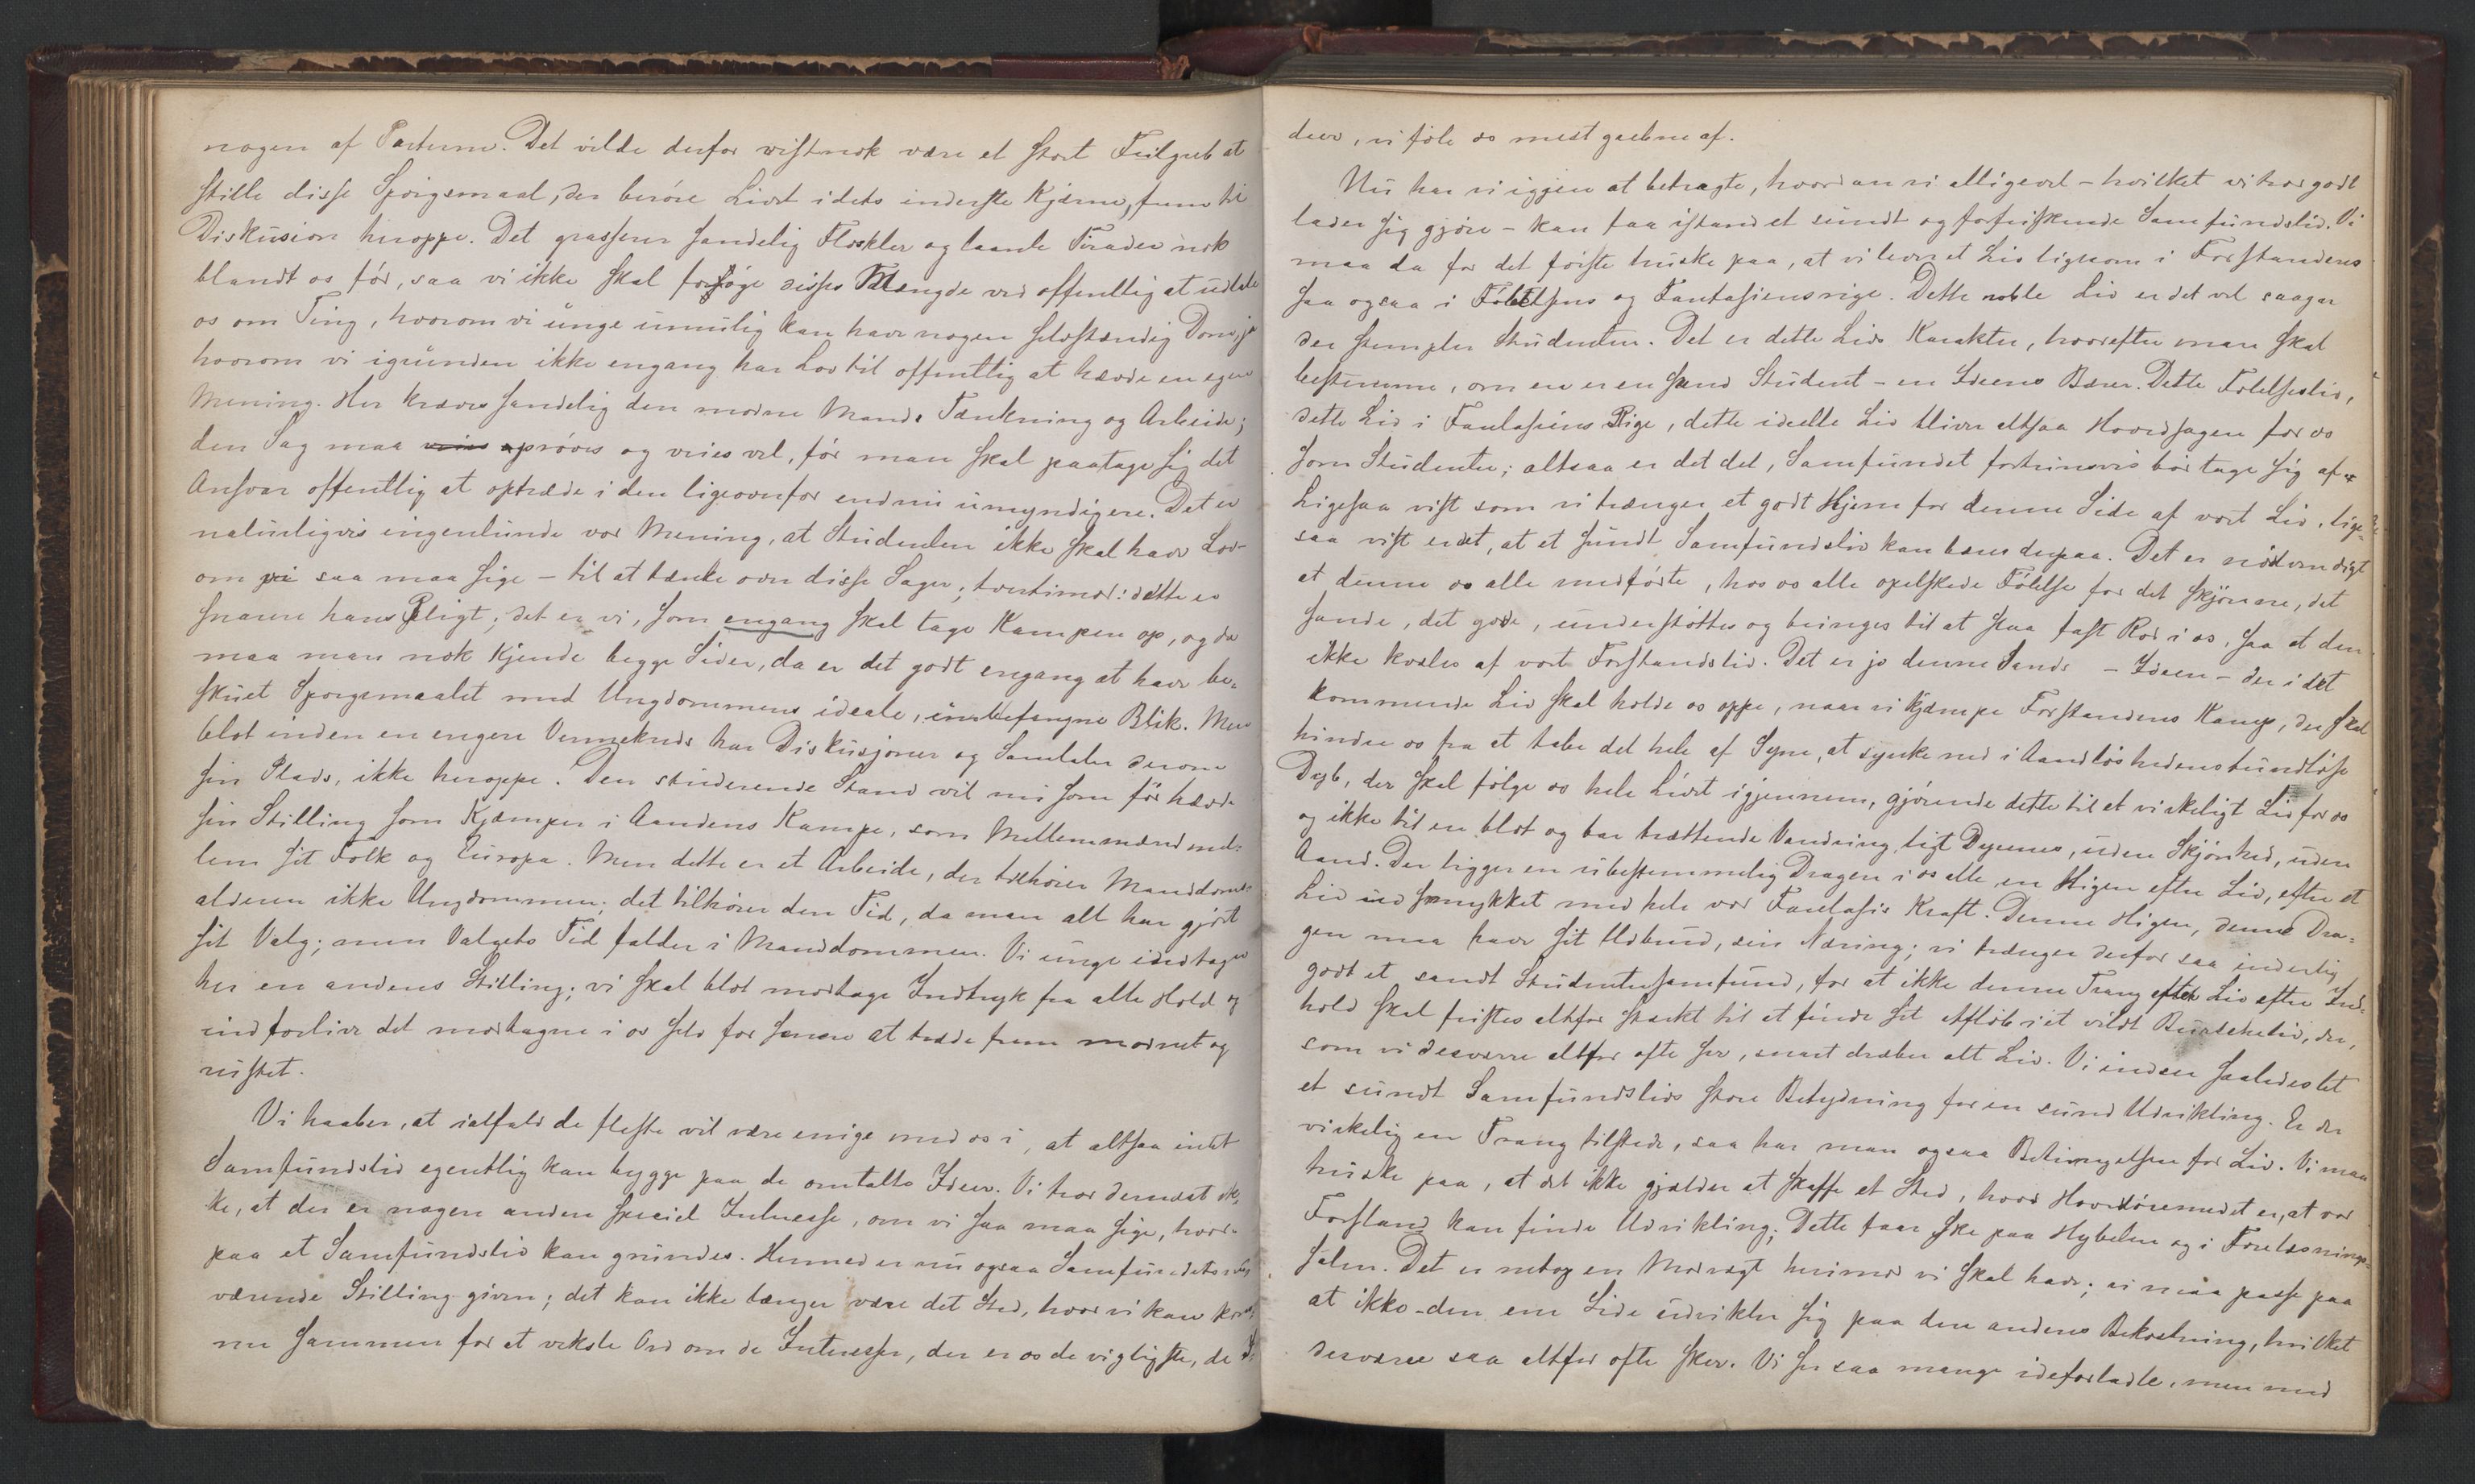 nogen af Parterne. Det vilde derfor vistnok være et stort Feilgreb at
stille disse Spörgsmaal, der beröre Livet i dets inderste Kjærne, frem til
Diskusion heroppe. Det grasserer sandelig Floskler og laante Tirader nok
blandt os för, saa vi ikke skal forøge disses Mængde ved offentlig at udtale
os om Ting, hvorom vi unge umulig kan have nogen selvstændig Dom, ja
hvorom vi igrunden ikke engang har Lov til offentlig at hævde en egen
Mening. Her kræves sandelig den modne Mands Tænkning og Arbeide;
den Sag maa veies prøves og veies vel, för man skal paatage sig det
Ansvar offentlig at optræde i den ligeoverfor endnu umyndigere. Det er
naturligvis ingenlunde vor Mening, at Studenten ikke skal have Lov-
om vi saa maa sige - til at tænke over disse Sager; tvertimod: dette er
snarere hans Pligt; det er vi, som engang skal tage Kampen op, og da
maa man nok kjende begge Sider, da er det godt engang at have be-
skuet Spörgsmaalet med Ungdommens ideale, ubefangne Blik. Men
blot inden en engere Vennekreds har Diskusjoner og Samtaler derom
sin Plads, ikke heroppe. Den studerende Stand vil nu som för hævde
sin Stilling som Kjæmper i Aandens Kampe, som Mellemmænd mel-
lem sit Folk og Europa. Men dette er et Arbeide, der tilhører Manddoms-
alderen ikke Ungdommen; det tilhører den Tid, da man alt har gjort
sit Valg; men Valgets Tid falder i Manddommen. Vi unge indtager
her en andens Stilling; vi skal blot modtage Indtryk fra alle Hold og
indforlive det modtagne i os selv for senere at træde frem modnet og
rustet.
Vi haaber, at ialfald de fleste vil være enige med os i, at altsaa intet
Samfundsliv egentlig kan bygge paa de omtalte Ideer. Vi tror dernæst ik-
ke, at der er nogen anden speciel Interesse, om vi saa maa sige, hvor-
paa et Samfundsliv kan grundes. Hermed er nu ogsaa Samfundets nu-
værende Stilling given; det kan ikke længer være det Sted, hvor vi kan kom-
me sammen for at veksle Ord om de Interesser, der er os de vigtigste, de I-
deer, vi föle os mest grebne af.
Nu har vi igjen at betragte, hvordan vi alligevel - hvilket vi tror godt
lader sig gjöre - kan faa istand et sundt og forfriskende Samfundsliv. Vi
maa da for det förste huske paa, at vi lever et Liv ligesom i Forstandens
saa ogsaa i Fölelsens og Fantasiens rige. Dette noble Liv er det vel saagar
der stempler Studenten. Det er dette Livs Karakter, hvorefter man skal
bestemme, om en er en sand Student - en Ideens Bærer. Dette Fölelsesliv,
dette Liv i Fantasiens Rige, dette ideelle Liv bliver altsaa Hovedsagen for os
som Studenter; altsaa er det det, Samfundet fortrinsvis bör tage sig af
Ligesaa vist som vi trænger et godt Hjem for denne Side af vort Liv, lige-
saa vist er det, at et sundt Samfundsliv kan bæres derpaa. Det er nödvendigt
at denne os alle medfödte, hos os alle opelskede Fölelse for det skjönne, det
sande, det gode, understöttes og bringes til at slaa fast Rod i os, saa at den
ikke kvæles af vort Forstandsliv. Det er jo denne Sands - Ideen - der i det
kommende Liv skal holde os oppe, naar vi kjæmpe Forstandens Kamp, der skal
hindre os fra at tabe det hele af Syne, at synke ned i Aandlöshedens bundløse
Dyb, der skal fölge os hele Livet igjennem, gjörende dette til et virkeligt Liv for os
og ikke til en blot og bar trættende Vandring, ligt Dyrenes, uden Skjönhed, uden
Aand. Der ligger en ubestemmelig Dragen i os alle en Higen efter Liv, efter et
Liv udsmykket med hele vor Fantasis Kraft. Denne Higen, denne Dra-
gen maa have sit Udbrud, sin Næring; vi trænger derfor saa inderlig
godt et sandt Studentersamfund, for at ikke denne Trang efter Liv efter Ind-
hold skal fristes altfor stærkt til at finde sit Afløb i et vildt Burscheliv, der,
som vi desværre altfor ofte ser, snart dræber alt Liv. Vi indser saaledes let
et sundt Samfundslivs store Betydning for en sund Udvikling. Er der
virkelig en Trang tilstede, saa har man ogsaa Betingelsen for Liv. Vi maa
huske paa, at det ikke gjælder at skaffe et Sted, hvor Hovedöiemedet er, at vor
Forstand kan finde Udvikling; Dette faar ske paa Hybelen og i Forelæsnings-
salen. Det er netop en Modvægt herimod vi skal have; vi maa passe paa
at ikke den ene Side udvikler sig paa den andens Bekostning, hvilket
desværre saa altfor ofte sker. Vi ser saa mange ideforladte, men med